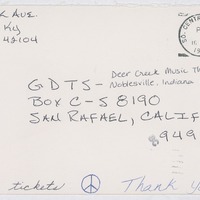 Ave
Ky
42104
SO. CENTR
GDTS - Deer Creek Music Th
Noblesville, Indiana
Box C-S 8190
San Rafael, Calif
949
tickets
Thank Y